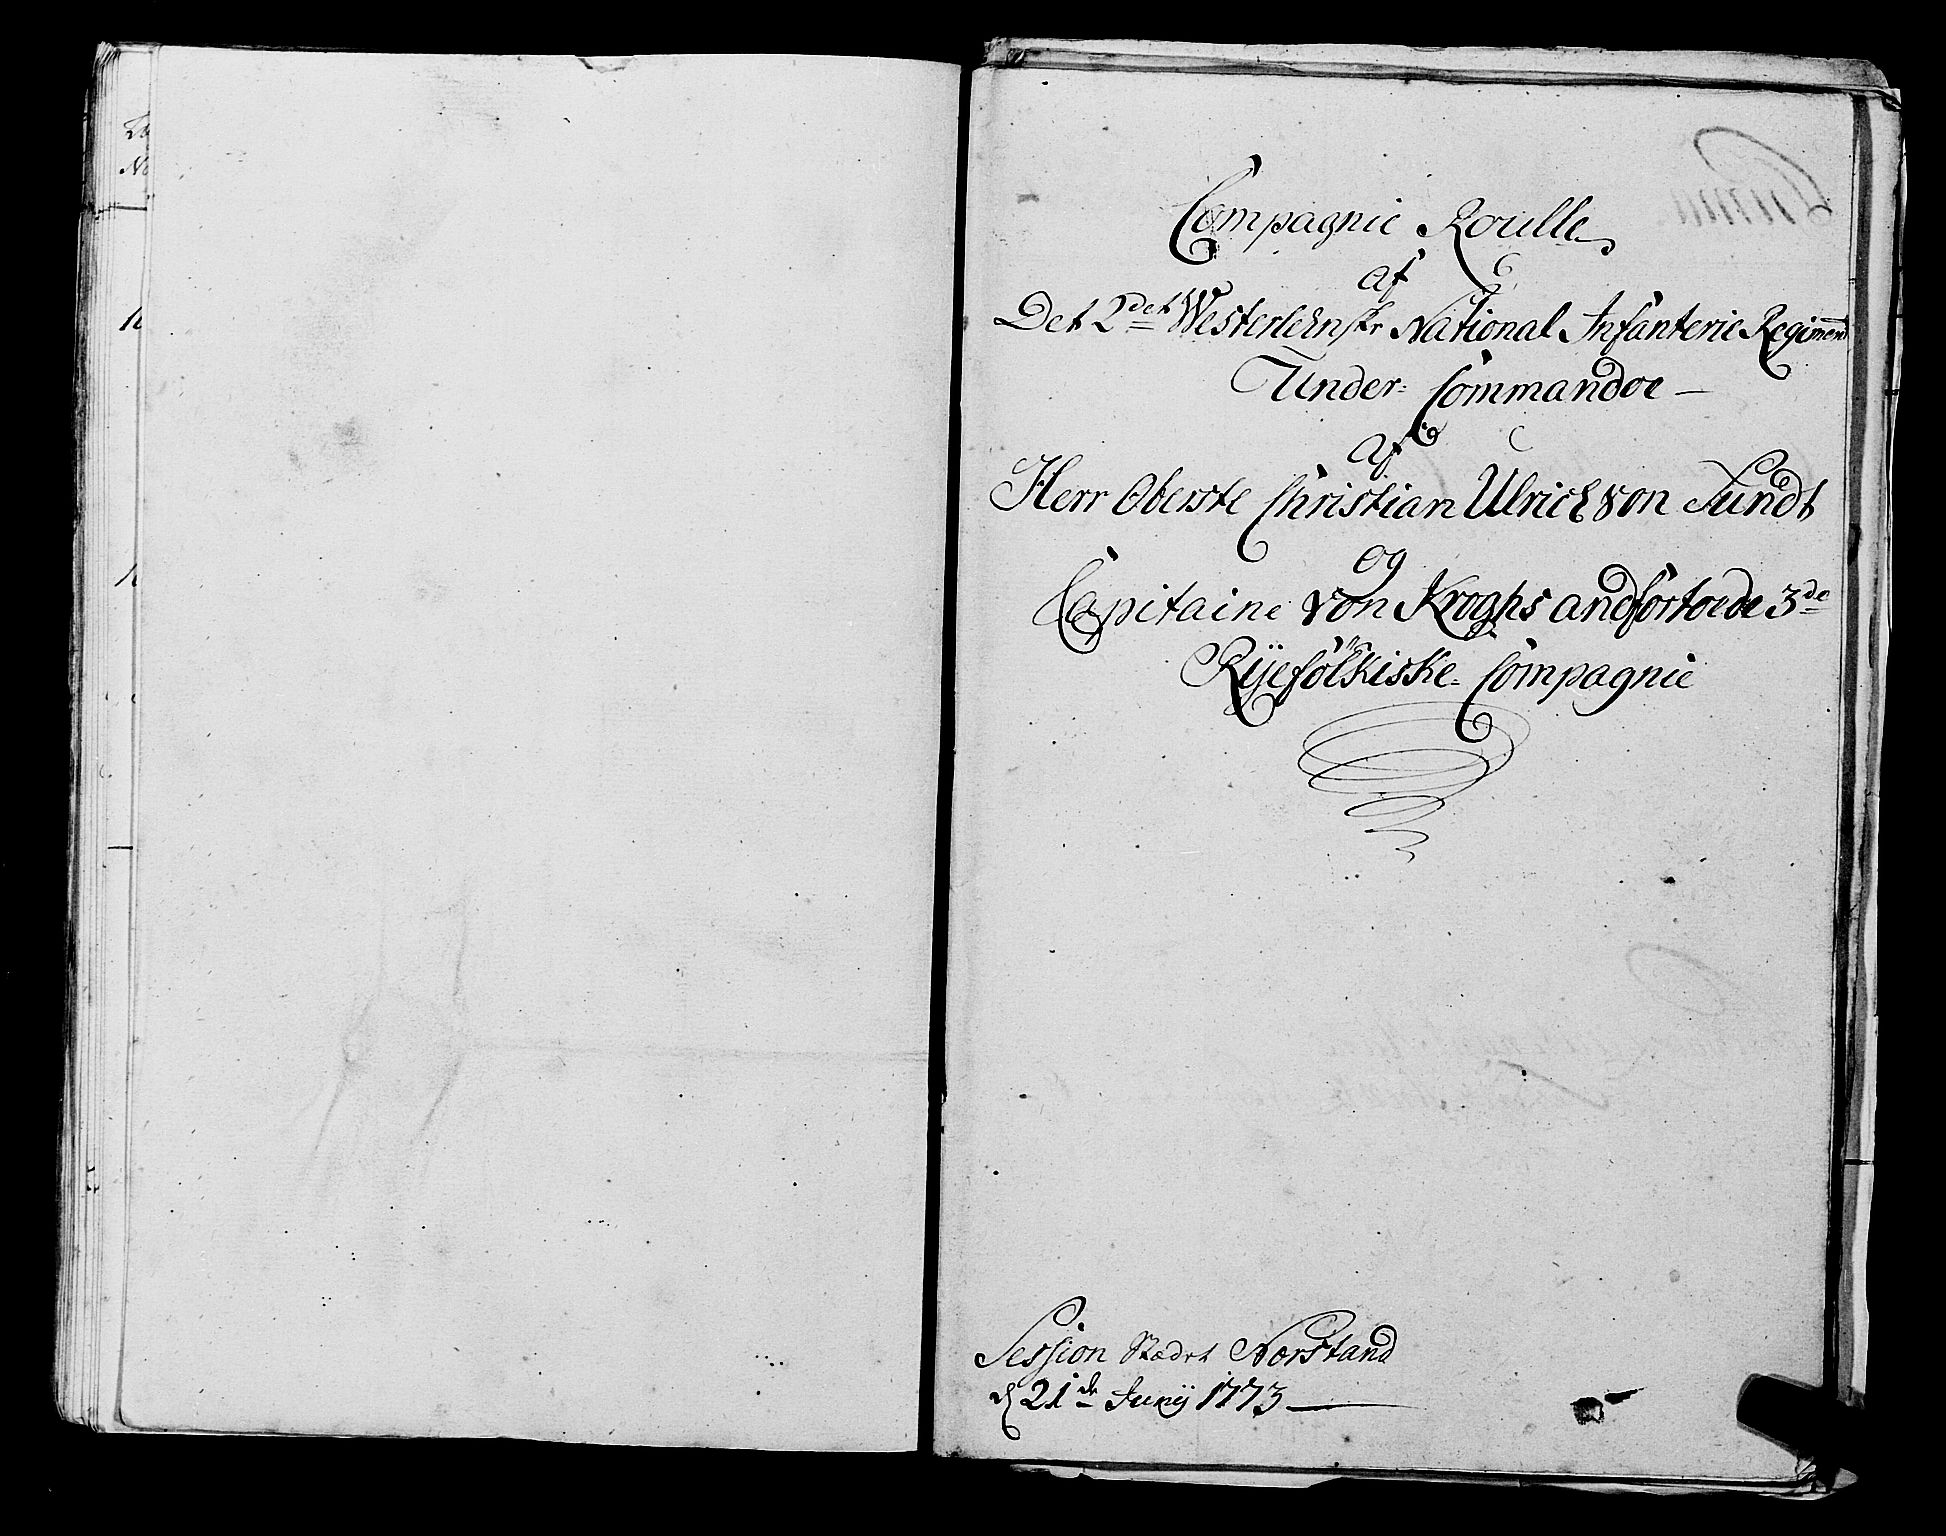 Compagnie Roulle
Af
Det 2det Westerlehnske National Infanterie Regiment
Under Commandoe
Af
Herr Oberste Christian Ulrich von Sundt
Og
Capitaine von Kroghs andfortoede 3de
Ryefölkiske Compagnie
Session Stædet Norstand
d 21de Junij 1773